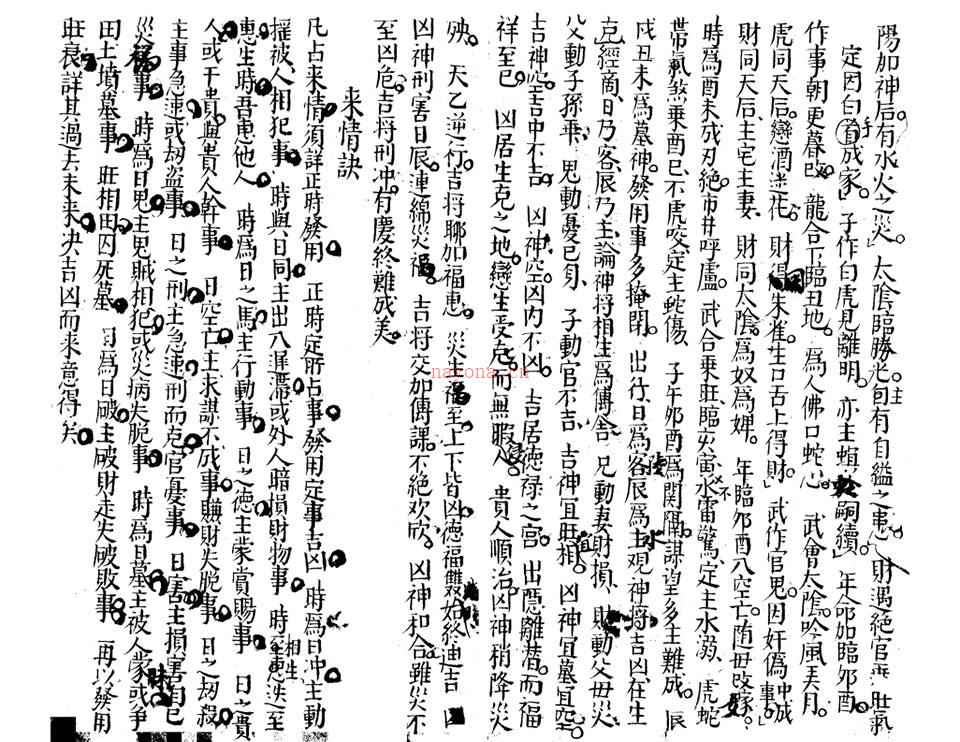 陽加神后。有水火之災。太陰臨勝光包有自縊之患。財遇絕官主旺氣
定因白手成家。子作白虎見離明。亦主螟蛉嗣續。年命加臨卯酉。
作事朝更暮改。龍合下臨丑地。為人佛口蛇心。武會太陰吟風弄月。
虎同天后。戀酒迷花。財得朱雀生口舌上得財。武作官鬼。因奸偽中成事。
財同天后。主宅主妻。財同太陰。為奴為婢。年臨卯酉入空亡隨母改嫁。
時為酉未戌刃絕市井呼盧。武合乘旺臨火寅水雷驚。定主水溺。虎蛇
帶氣煞乘酉巳不虎咬定主蛇傷。子午卯酉為関隔。謀望多主難成。辰
戌丑未為墓神。發用事多掩閉。出行。日為客辰為主。观神將吉凶在生
克。經商。日乃客。辰乃主。論神將相生為傳舍。兄動妻財損。財動父母災
父動子孫乖。鬼動憂己身。子動官不吉。吉神宜旺相。凶神宜墓宜空。
吉神空。吉中不吉。凶神空。凶內不凶。吉居德祿之宮。出隱離潛。而福
祥至已。凶居生克之地。戀生受克。而無暇侵人。貴人順治。凶神稍降災
殃。天乙逆行。吉將聊加福惠。災生福至上下皆凶。德福雙始終迪吉。
凶神刑害日辰。連綿災禍。吉將交加傳課。不絕欢欣。凶神和合雖災不
至凶危。吉將刑冲。有慶終難成美。
来情訣
凡占来情須詳正時發用 正時定所占事發用定事吉凶 時為日冲主動
摇被人相犯事 時與日同主出入遲滯或外人暗損財物事 時生
惠生時吾惠他人 時為日之馬主行動事 日之德主蒙賞賜事 日之貴
人或干貴與貴人幹事 日空亡主求謀不成事賺財失脫事 日之劫殺
主事急速或劫盜事 日之刑主急速刑而克官憂事 日害主損害自己
災禍事 時為日鬼主鬼賊相犯或災病失脫事 時為日墓主被人蒙昧或爭
田土墳墓事 旺相田囚死墓 日為日破主破財走失破敗事 再以發用
旺衰詳其過去未来决吉凶而来意得矣
nayona.cn